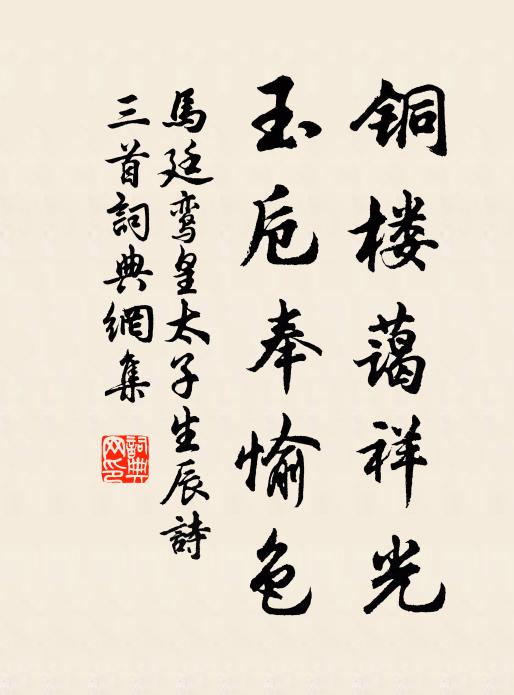 铜楼蔼祥光
玉卮奉愉色
馬廷鸾皇太子生辰詩
三首詞典網集
詞典网印